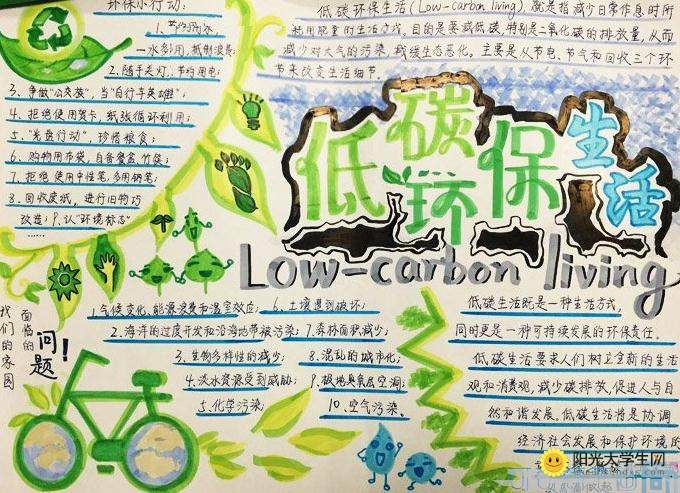 环保小行动:
1、节约用水,
一水多用,抵制浪费;
2、随手关灯,节约用电;
3、争做“公交族”,当“自行车英雄”;
4、拒绝使用贺卡,纸张循环利用;
5、“光盘行动”,珍惜粮食;
6、购物用布袋,自备餐盒、竹筷;
7、拒绝使用中性笔,多用钢笔;
8、回收废纸,进行旧物巧
改造;9、认“环境标志”
......
低碳环保生活(Low-carbon living),就是指减少日常作息时所
耗用能量的生活方式。目的是要减低碳,特别是二氧化碳的排放量,从而
减少对大气的污染,减缓生态恶化。主要是从节电、节气和回收三个环
节来改变生活细节。
低碳环保生活
Low-carbon living
我们的家园
面临的
问题!
1.气候变化、能源浪费和温室效应;
2、海洋的过度开发和沿海地带被污染;
3、生物多样性的减少;
4、淡水资源受到威胁;
5、化学污染;
6、土壤遭到破坏;
7、森林面积减少;
8、混乱的城市化;
9、极地臭氧层空洞;
10、空气污染。
低碳生活既是一种生活方式,
同时更是一种可持续发展的环保责任。
低碳生活要求人们树立全新的生活
观和消费观,减少碳排放,促进人与自
然和谐发展。低碳生活将是协调
经济社会发展和保护环境的
阳光大学生网